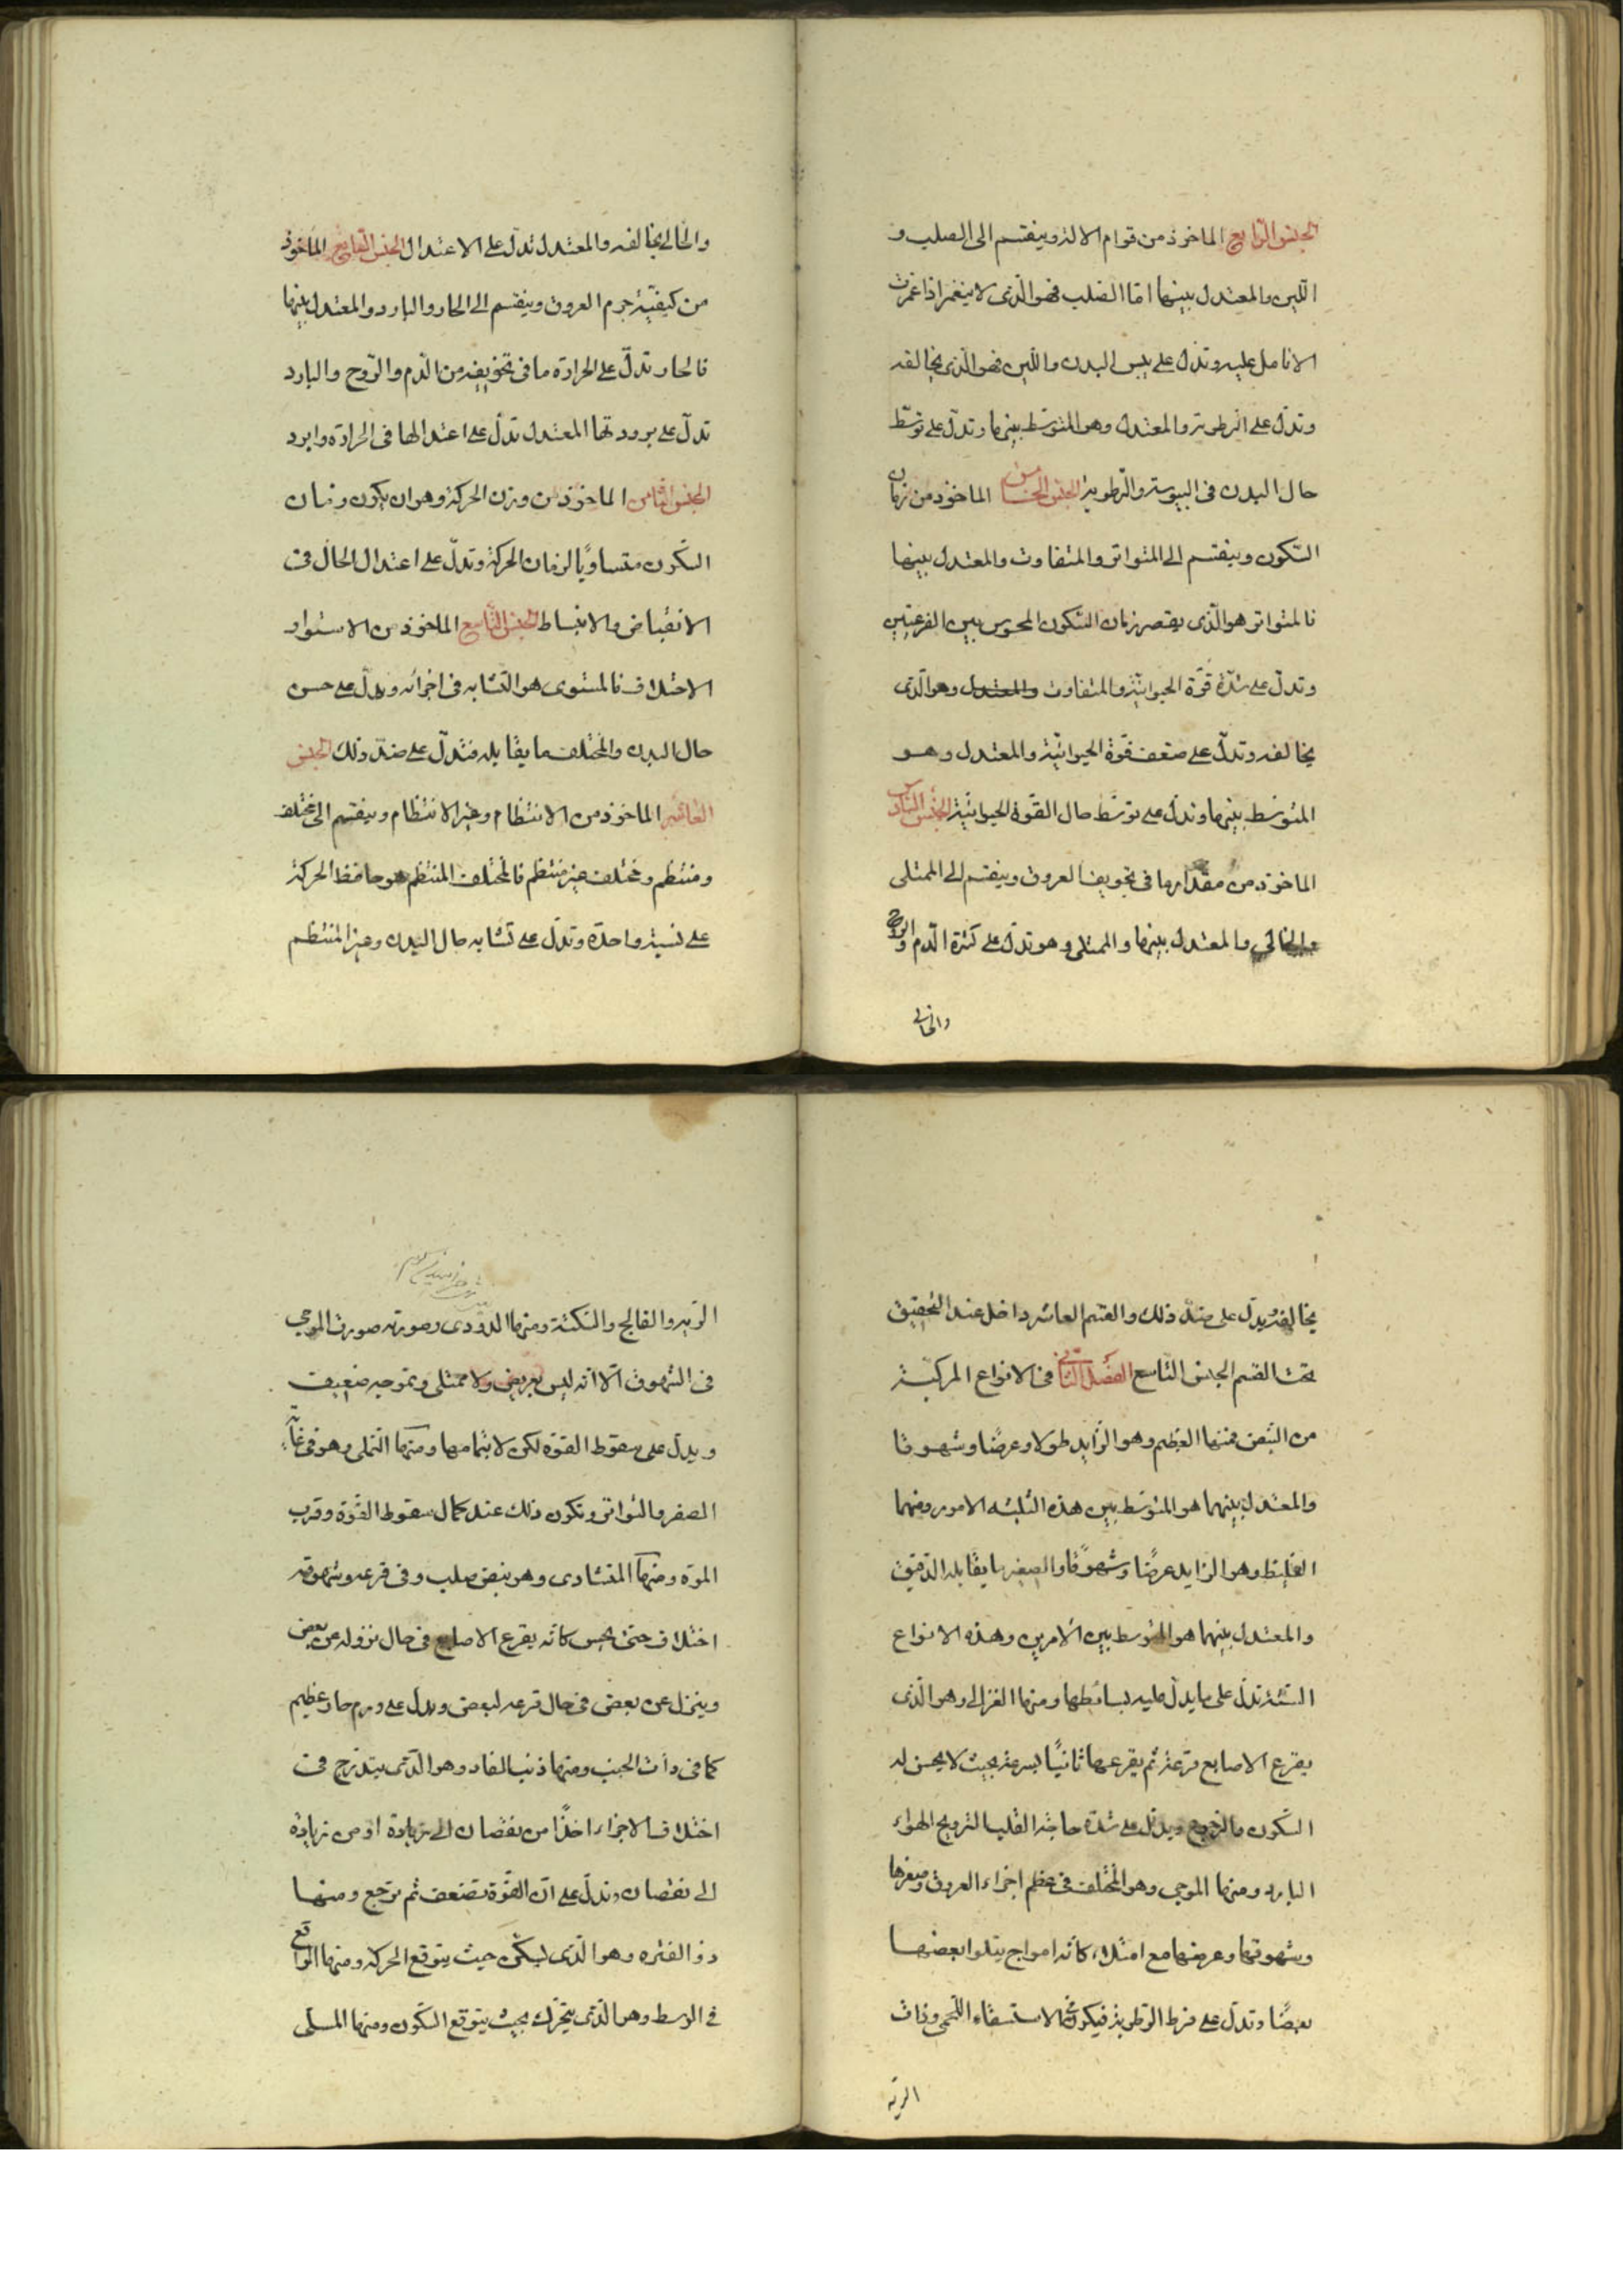 الجنس الرابع الماخوذ من قوام الالة وينقسم الى الصلب و
اللين والمعتدل بينهما اما الصلب فهو الذى لا ينغمز اذا غمزت
الانامل عليه وتدل على يبس البدن واللين فهو الذى يخالفه
وتدل على الرطوبة والمعتدل وهو المتوسط بينهما وتدل على توسط
حال البدن فى اليبوسة والرطوبة الجنس الخامس الماخوذ من زمان
السكون وينقسم الى المتواتر والمتفاوت والمعتدل بينهما
فالمتواتر هو الذى يقصر زمان السكون المحسوس بين القرعتين
وتدل على شدة قوة الحيوانية والمتفاوت والمعتدل وهو الذى
يخالفه وتدل على ضعف قوة الحيوانية والمعتدل وهو
المتوسط بينهما وتدل على توسط حال القوة الحيوانية الجنس السادس
الماخوذ من مقدار ما فى تجويف العروق وينقسم الى الممتلى
والخالى والمعتدل بينهما والممتلى وهو تدل على كثرة الدم والروح
والخالى
والخالى يخالفه والمعتدل تدل على الاعتدال الجنس السابع الماخوذ
من كيفية جرم العروق وينقسم الى الحار والبارد والمعتدل بينهما
فالحار تدل على الحرارة ما فى تجويفه من الدم والروح والبارد
تدل على برودتها المعتدل تدل على اعتدالها فى الحرارة وابرد
الجنس الثامن الماخوذ من وزن الحركة وهو ان يكون زمان
السكون متساويا لزمان الحركة وتدل على اعتدال الحال فى
الانقباض والانبساط الجنس التاسع الماخوذ من الاستواء و
الاختلاف فالمستوى هو التشابه فى اجزائه ويدل على حسن
حال البدن والمختلف ما يقابله فتدل على ضد ذلك الجنس
العاشر الماخوذ من الانتظام وغير الانتظام وينقسم الى مختلف
ومنتظم ومختلف غير منتظم فالمختلف المنتظم هو حافظ الحركة
على نسبة واحدة وتدل على تشابه حال البدن وغير المنتظم
يخالفه ويدل على ضد ذلك والقسم العاشر داخل عند التحقيق
تحت القسم الجنس التاسع الفصل الثانى فى الانواع المركبة
من النبض فمنها العظيم وهو الزايد طولا وعرضا وشهوقا
والمعتدل بينهما هو المتوسط بين هذه الثلثه الامور ومنهما
الغليظ وهو الزايد عرضا وشهوقا والصغير ما يقابله الدقيق
والمعتدل بينهما هو المتوسط بين الامرين وهذه الانواع
الستة تدل على ما يدل عليه بسائطها ومنها الغزالى وهو الذى
يقرع الاصابع قرعة ثم يقرعها ثانيا بسرعة بحيث لا يحس له
السكون والرجوع ويدل على شدة حاجة القلب لترويح الهواء
البارد ومنها الموجى وهو المختلف فى عظم اجزاء العروق وصغرها
وشهوقها وعرضها مع امتلاء كانه امواج يتلوا بعضها
بعضا وتدل على فرط الرطوبة فيكون فى الاستسقاء اللحمى وذات
الرية
الرية والفالج والسكتة ومنها الدودى وصورته صورت الموجى
فى الشهوق الا انه ليس بعريض ولا ممتلى وتموجه ضعيف
ويدل على سقوط القوة لكن لا بتمامها ومنها النملى وهو فى غاية
الصغر والتواتر وتكون ذلك عند كمال سقوط القوة وقرب
الموة ومنها المنشارى وهو نبض صلب وفى قرعه وشهوقه
اختلاف حتى يحس كانه يقرع الاصابع فى حال نزوله عن بعض
وينزل عن بعض فى حال قرعه لبعض ويدل على ورم حار عظيم
كما فى ذات الجنب ومنها ذنب الفار وهو الذى يتدرج فى
اختلاف الاجزاء اخذا من نقصان الى زيادة او من زيادة
الى نقصان وتدل على ان القوة تضعف ثم ترجع ومنها
ذو الفتره وهو الذى يسكن حيث يتوقع الحركة ومنها الواقع
فى الوسط وهو الذى يتحرك بحيث يتوقع السكون ومنها المسلى